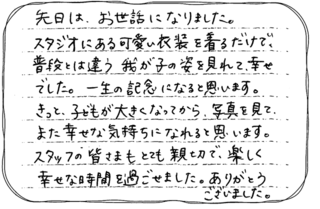 先日は、お世話になりました。
スタジオにある可愛い衣装を着るだけで、
普段とは違う 我が子の姿を見れて、幸せ
でした。一生の記念になると思います。
きっと、子どもが大きくなってから、写真を見て、
また幸せな気持ちになれると思います。
スタッフの皆さまもとても親切で、楽しく
幸せな時間を過ごせました。ありがとう
ございました。